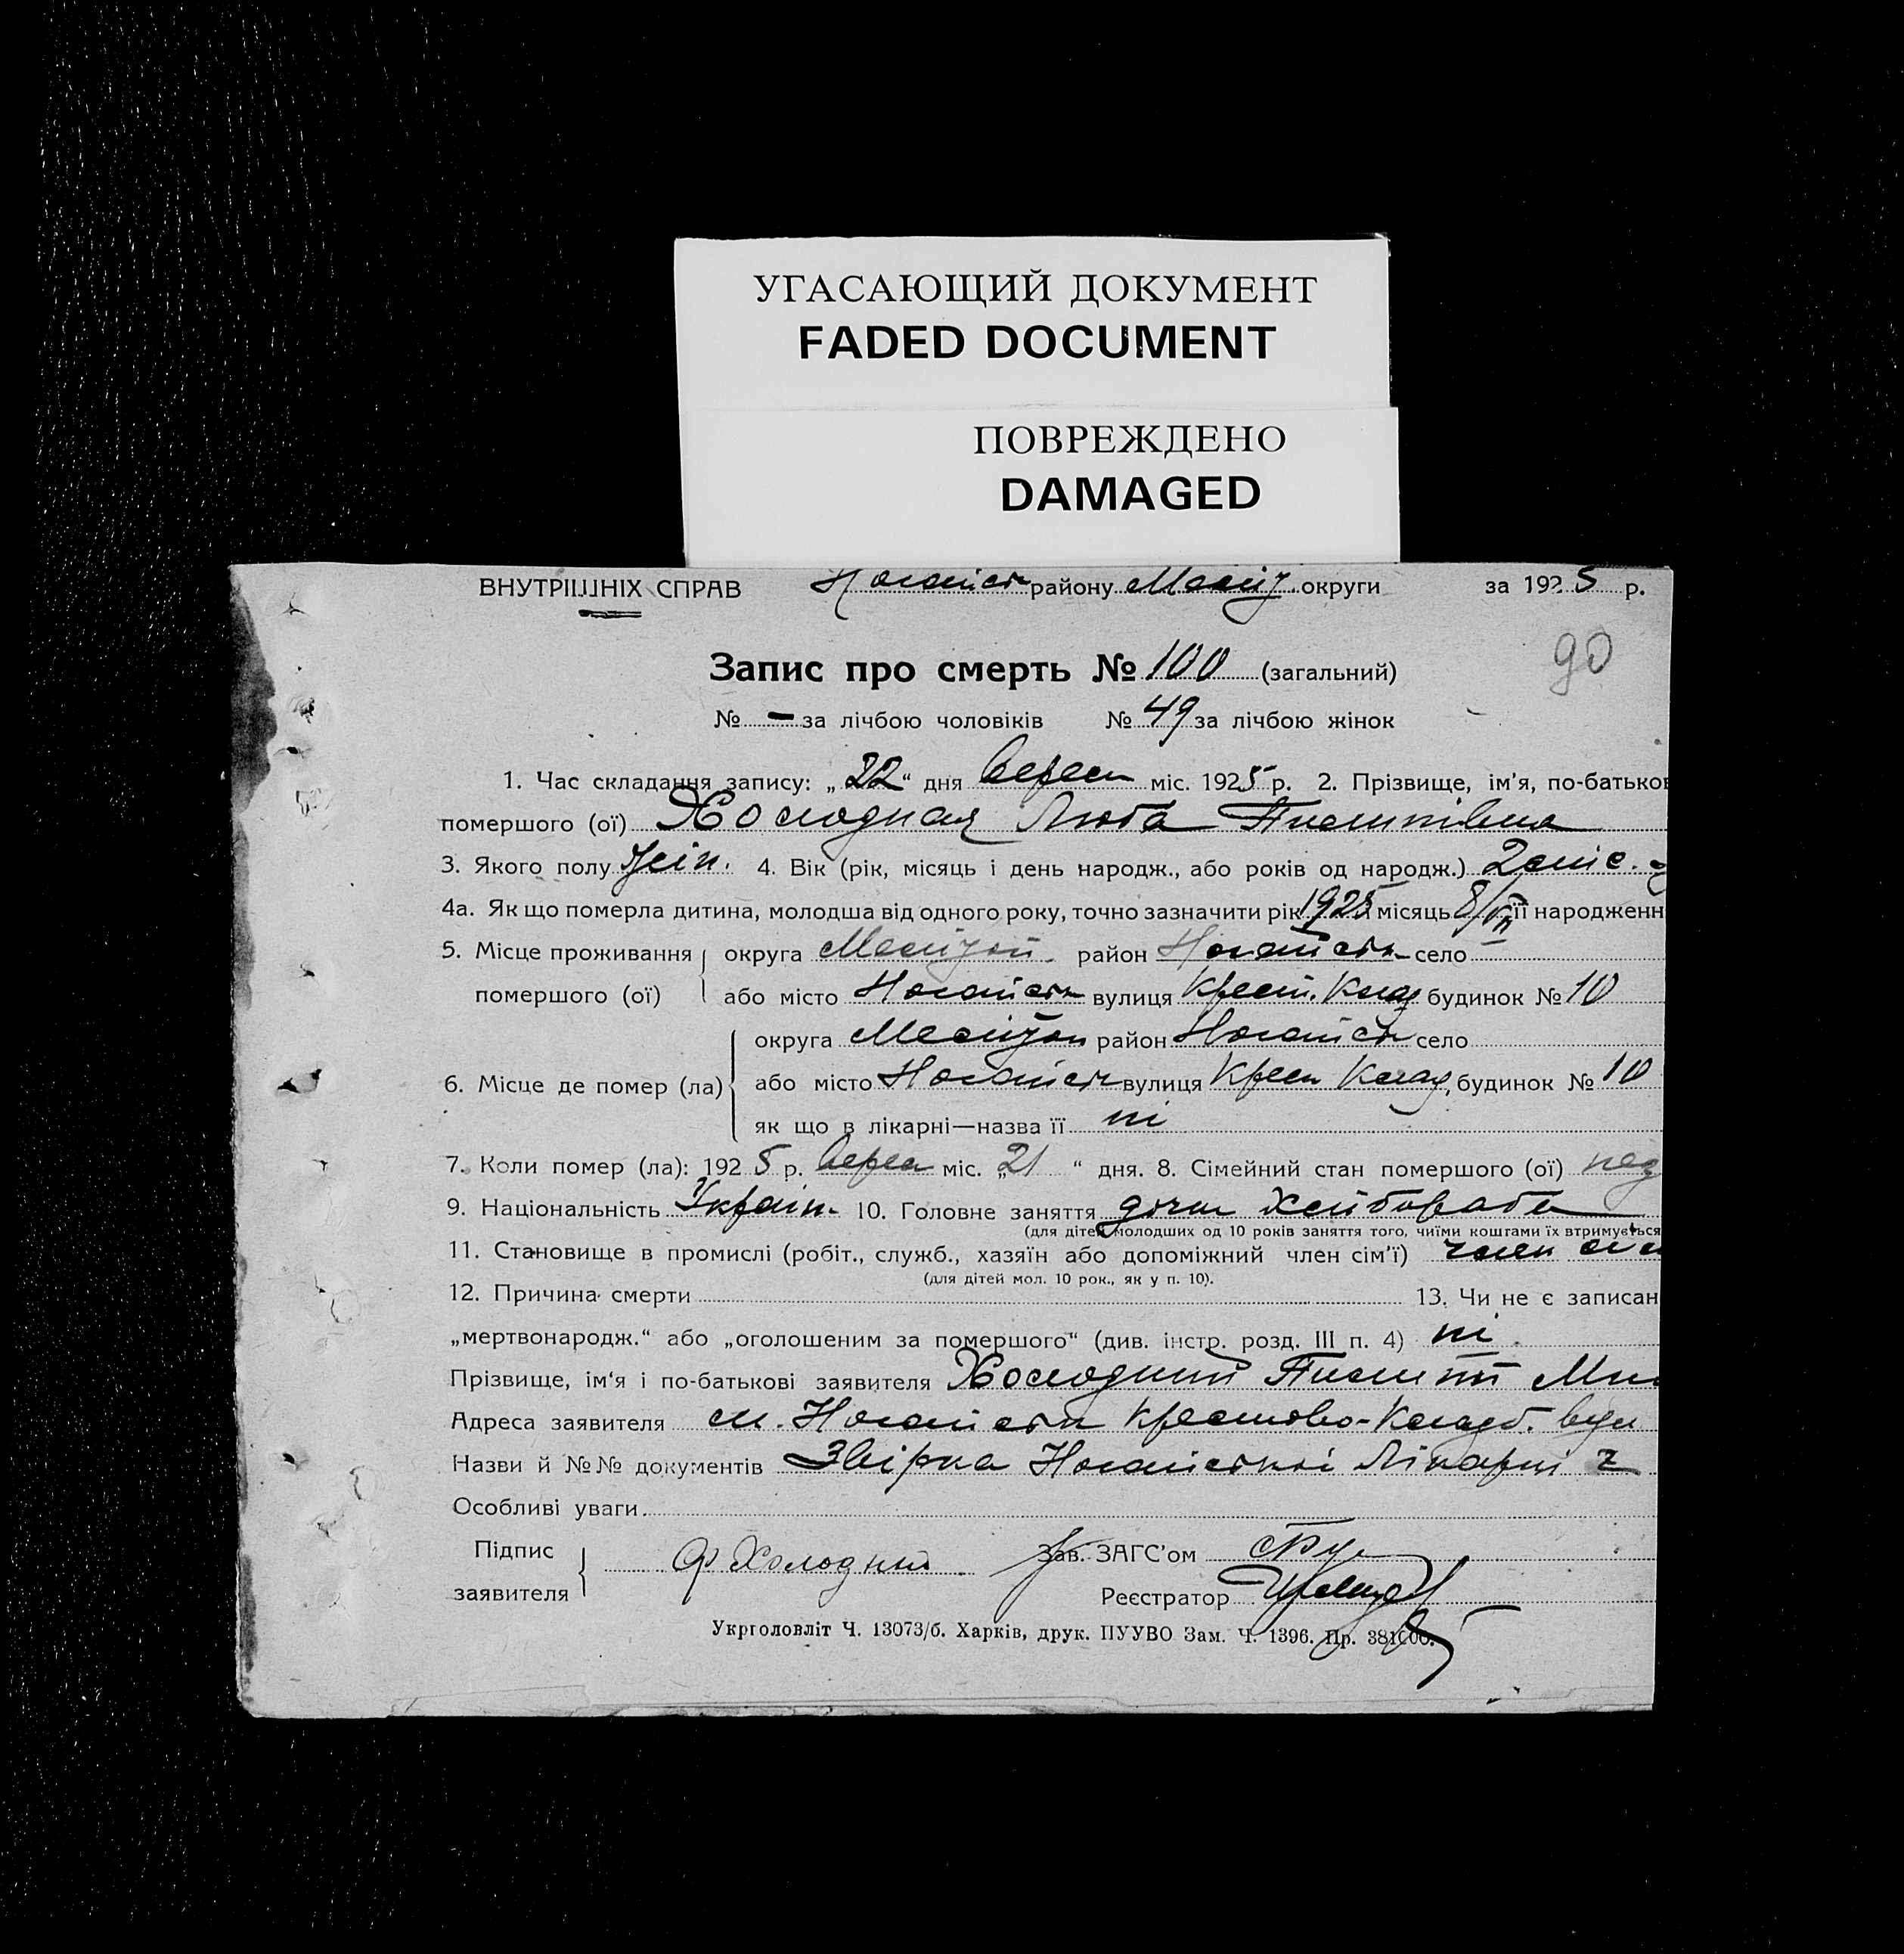 УГАСАЮЩИЙ ДОКУМЕНТ
FADED DOCUMENT
ПОВРЕЖДЕНО
DAMAGED
ВНУТРІШНІХ СПРАВ Ногайськ району Меліт. округи за 1925 р.
90
Запис про смерть № 100 (загальний)
№ – за лічбою чоловіків № 49 за лічбою жінок
1. Час складання запису: „22“ дня Вересн міс. 1925 р. 2. Прізвище, ім'я, по-батьков
помершого (ої) Холодная Люба Пилипівна
3. Якого полу жін. 4. Вік (рік, місяць і день народж., або років од народж.) 2 міс.
4а. Як що померла дитина, молодша від одного року, точно зазначити рік 1925 місяць 8/VII її народженн
5. Місце проживання округа Меліton. район Ногайськ село
помершого (ої) або місто Ногайськ вулиця Крест. Клад будинок № 10
округа район Ногайськ село
6. Місце де помер (ла) або місто Ногайськ вулиця Крест Клад, будинок № 10
як що в лікарні—назва її ні
7. Коли помер (ла): 1925 р. Вересн міс. „21“ дня. 8. Сімейний стан помершого (ої)
9. Національність Україн. 10. Головне заняття дочка Хлібороба
(для дітей молодших од 10 років заняття того, чиїми коштами їх втримується
11. Становище в промислі (робіт., служб., хазяїн або допоміжний член сім'ї) член сім
(для дітей мол. 10 рок., як у п. 10).
12. Причина смерти 13. Чи не є записан
„мертвонародж.“ або „оголошеним за помершого“ (див. інстр. розд. III п. 4) ні.
Прізвище, ім'я і по-батькові заявителя Холодний Пилип
Адреса заявителя м. Ногайськ Крестово-Кладб. вул
Назви й №№ документів Ногайської Лікарні
Особливі уваги
Підпис Ф Холодний Зав. ЗАГС'ом
заявителя Реєстратор
Укрголовліт Ч. 13073/б. Харків, друк. ПУУВО Зам. Ч. 1396. Пр. 381000.